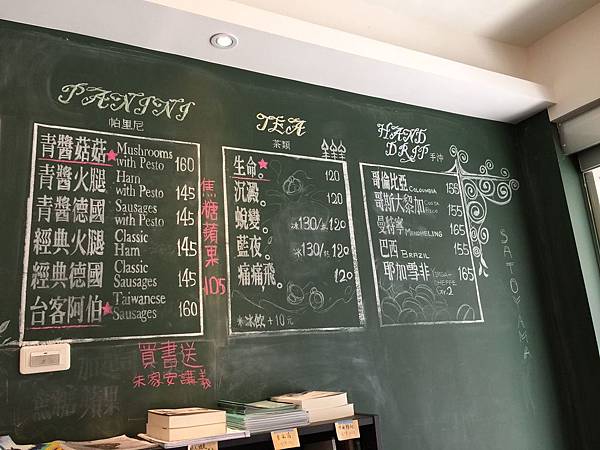 PANINI
帕里尼
青醬菇菇★ Mushrooms with Pesto 160
青醬火腿 Ham with Pesto 145
青醬德國 Sausages with Pesto 145
經典火腿 Classic Ham 145
經典德國 Classic Sausages 145
台客阿伯★ Taiwanese Sausages 160
焦糖蘋果 105
買書送
朱家安講義
TEA
茶類
生命。★ 120
沉澱。 120
蛻變。 冰130/ 120
藍夜。 冰130/ 120
痛痛飛。 120
*冰飲+10元
HAND DRIP 手沖
哥倫比亞 COLOUMBIA 155
哥斯大黎加 COSTA RICA 155
曼特寧 MANDHELING 165
巴西 BRAZIL 155
耶加雪菲 165
SATOYAMA
焦糖蘋果